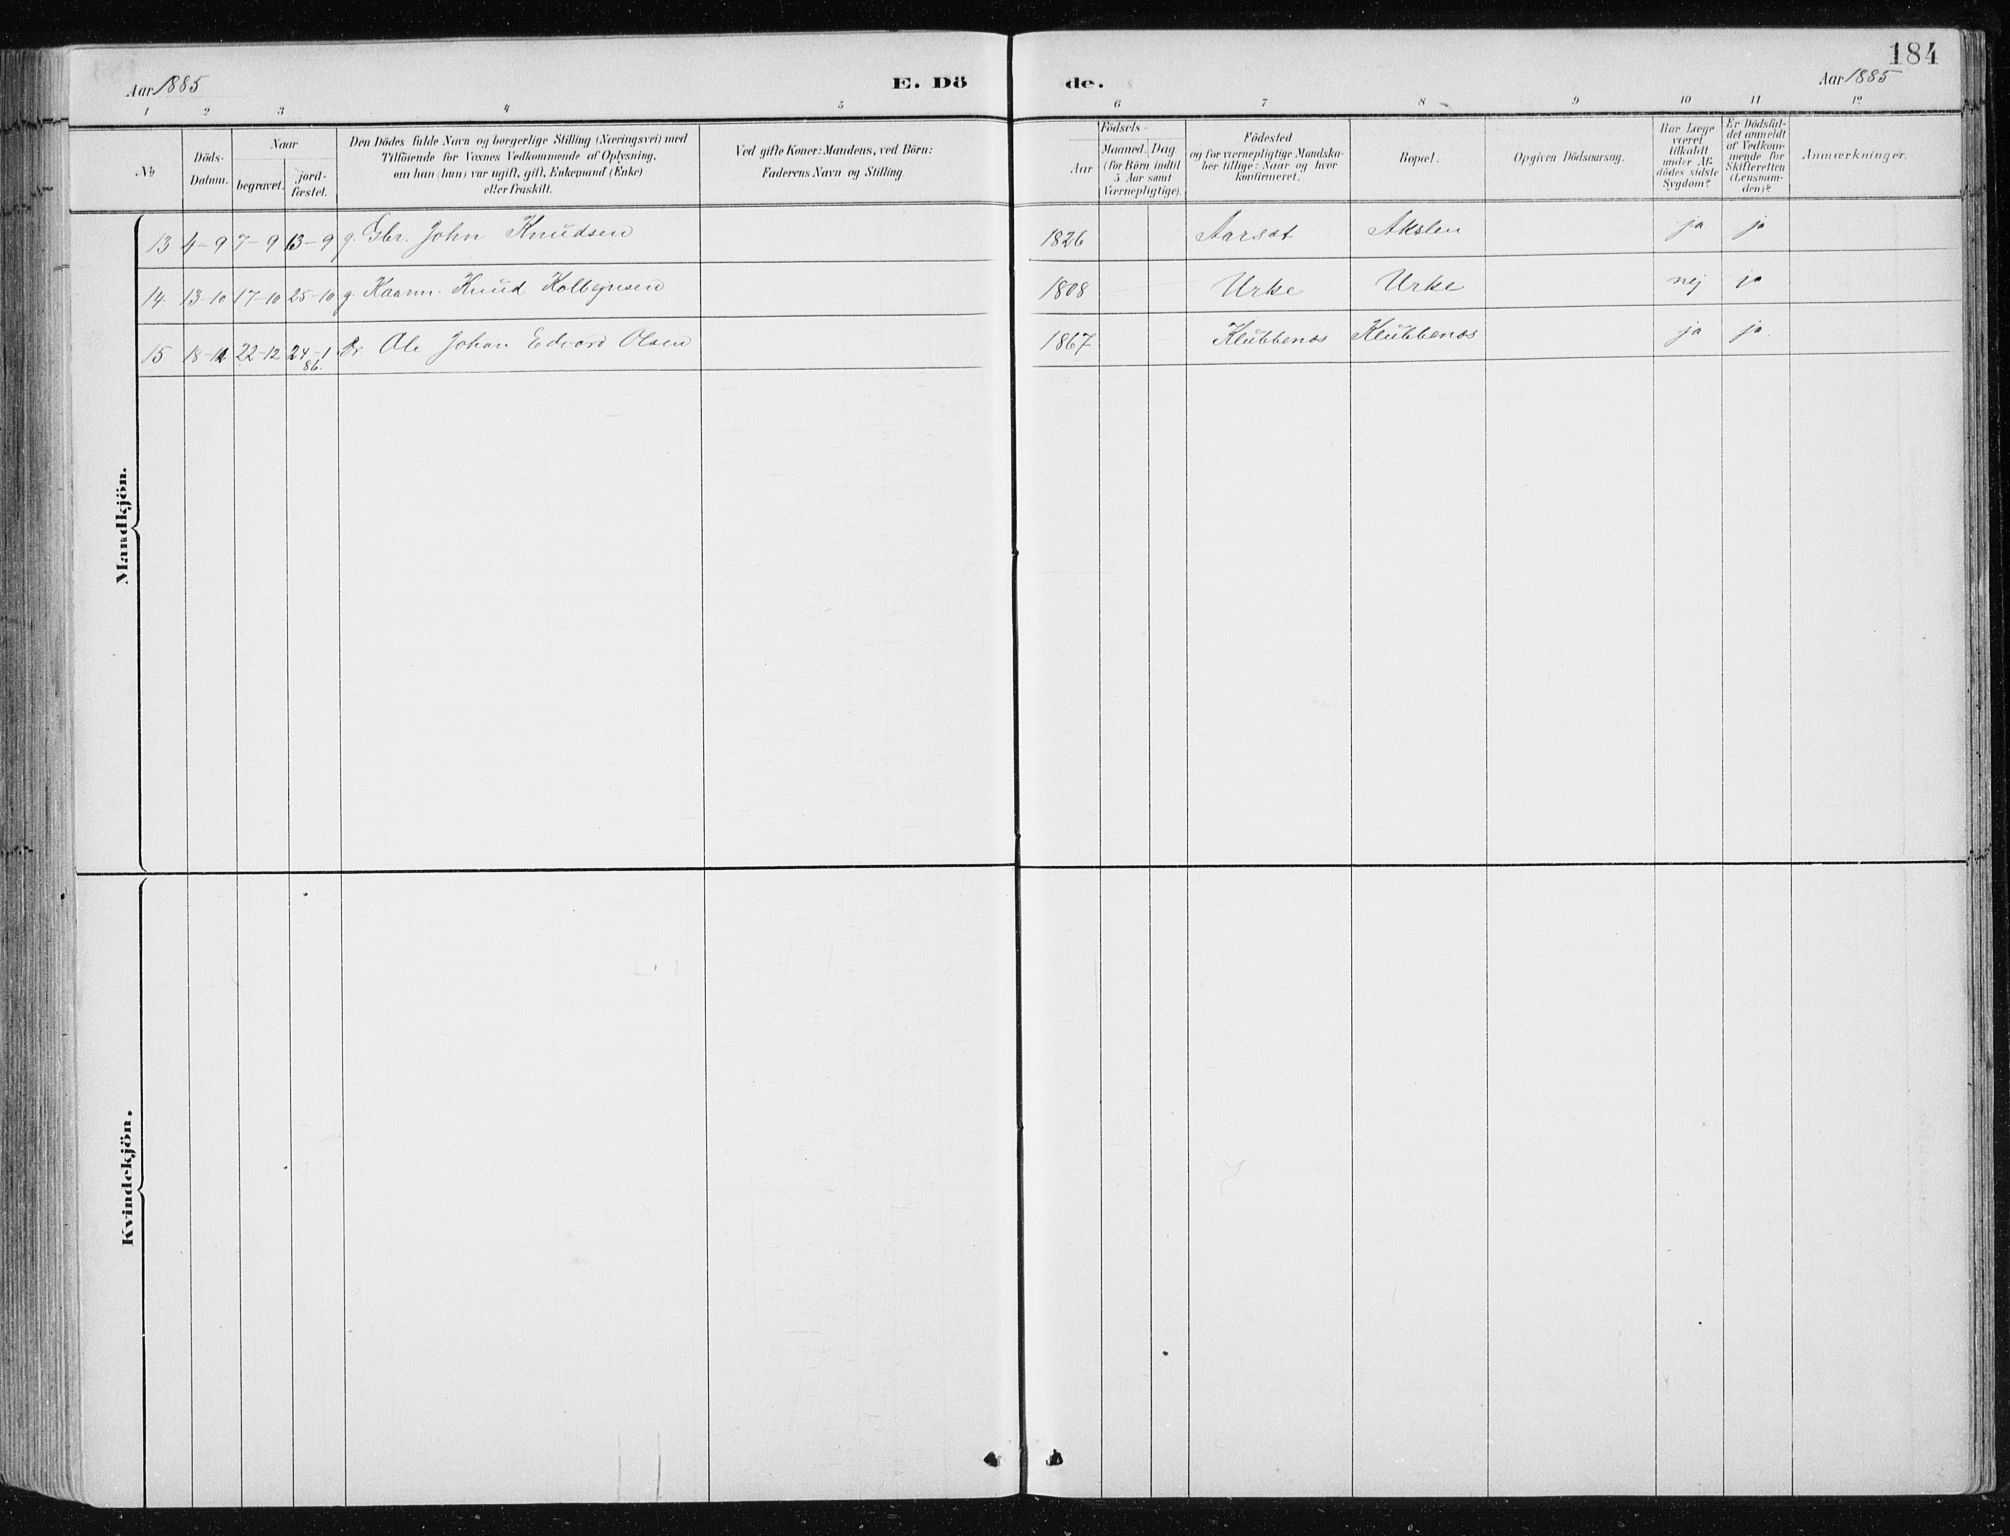 184
Aar 1885
E. Dö
de.
Aar 1885
1 2 3 4 5 6 7 8 9 10 11 12
No
Döds-
Datum.
Naar
begravet.
jord-
fæstet.
Den Dödes fulde Navn og borgerlige Stilling (Næringsvei) med
Tilföiende for Voxnes Vedkommende af Oplysning,
om han (hun) var ugift, gift, Enkemand (Enke)
eller fraskilt.
Ved gifte Koner: Mandens, ved Börn:
Faderens Navn og Stilling.
Födsels-
Aar
Maaned. Dag
(for Börn indtil
5 Aar samt
Værnepligtige).
Födested
og for værnepligtige Mandska-
ber tillige: Naar og hvor
konfirmeret.
Bopæl.
Opgiven Dödsaarsag.
Har Læge
været
tilkaldt
under Af-
dödes sidste
Sygdom?
Er Dödsfal-
det anmeldt
af Vedkom-
mende for
Skifteretten
(Lensman-
den)?
Anmærkninger.
Mandkjön.
13 4-9 7-9 13-9 g. Gbr. John Knudsen 1826 Aarsæt Akslen ja ja
14. 13-10 17-10 25-10 g. Kaarm. Knud Kolbejnsen 1808 Urke Urke nej ja
15 18-12 22-12 24-1 Dr Ole Johan Edvard Olsen 1867 Klubbenæs Klubbenæs ja ja.
86.
Kvindekjön.